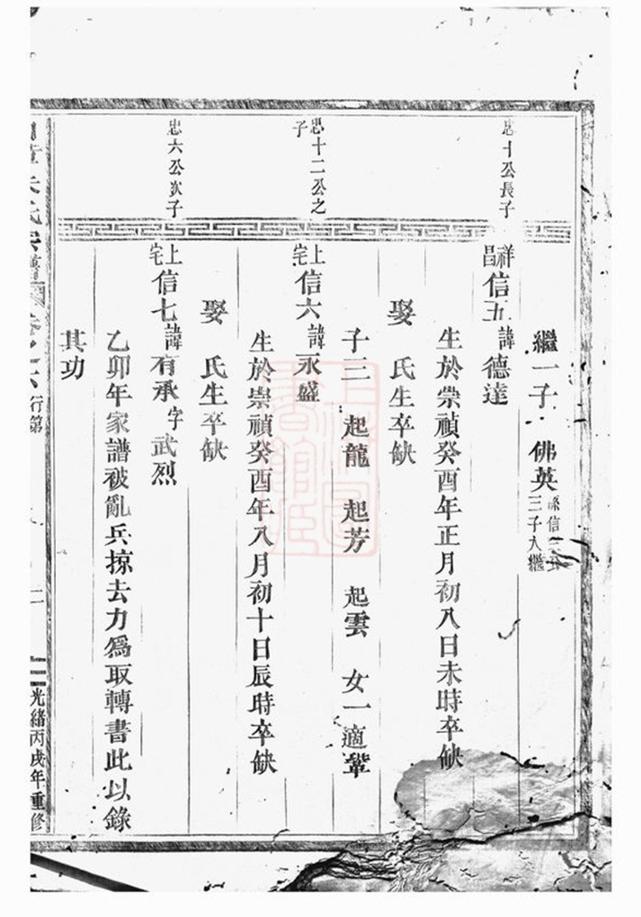 繼一子 佛英 係信三公三子入繼
忠十公長子
祥昌信五諱德達
生於崇禎癸酉年正月初八日未時卒缺
娶 氏生卒缺
子三 起龍 起芳 起雲 女一適鞏
忠十二公之子
上宅信六諱永盛
生於崇禎癸酉年八月初十日辰時卒缺
娶 氏生卒缺
忠六公次子
上宅信七諱有承字武烈
乙卯年家譜被亂兵掠去力爲取轉書此以錄
其功
氏宗譜
行第
光緒丙戌年重修